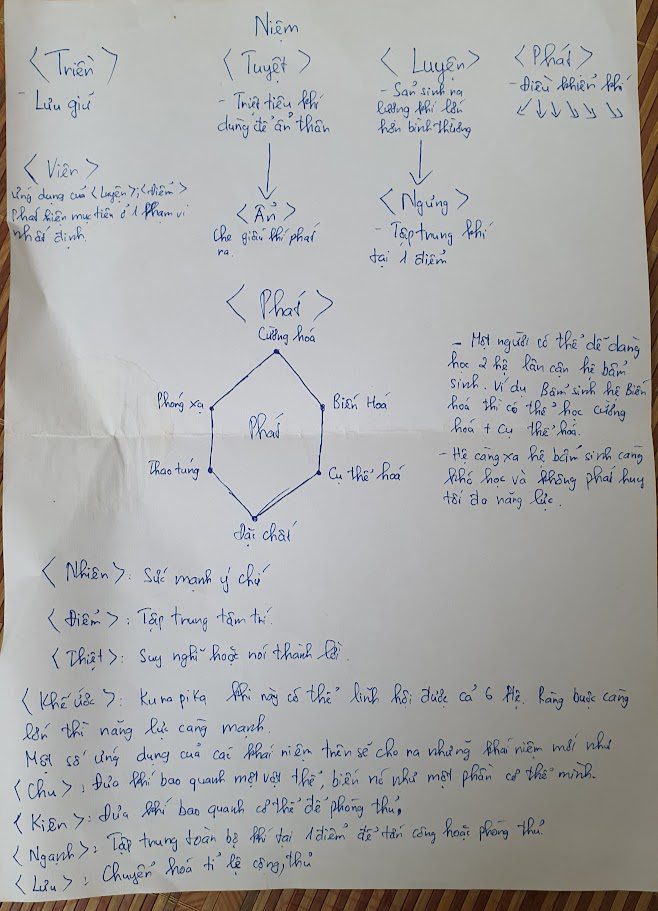 Niệm
<Triển>
- Lưu giữ
<Tuyệt>
- Triệt tiêu khí
dùng để ẩn thân
<Luyện>
- Sản sinh ra
lượng khí lớn
hơn bình thường
<Phát>
- Điều khiển khí
<Viên>
Ứng dụng của <Luyện>; <Điểm>
Phát hiện mục tiêu ở 1 phạm vi
nhất định.
<Ẩn>
Che giấu khí phát
ra.
<Ngưng>
- Tập trung khí
tại 1 điểm
<Phát>
Cường hoá
Phóng xạ
Biến Hoá
Phát
Thao túng
Cụ thể hoá
Đặc chất
- Một người có thể dễ dàng
học 2 hệ lân cận hệ bẩm
sinh. Ví dụ Bẩm sinh hệ Biến
hoá thì có thể học cường
hoá + Cụ thể hoá.
- Hệ càng xa hệ bẩm sinh càng
khó học và không phát huy
tối đa năng lực.
<Nhiên>: Sức mạnh ý chí
<Điểm>: Tập trung tâm trí.
<Thiệt>: Suy nghĩ hoặc nói thành lời.
<Khế ước>: Kurapika khi này có thể lĩnh hội được cả 6 Hệ. Ràng buộc càng
lớn thì năng lực càng mạnh.
Một số ứng dụng của các khái niệm trên sẽ cho ra những khái niệm mới như
<Chu>: Đưa khí bao quanh một vật thể, biến nó như một phần cơ thể mình.
<Kiên>: Đưa khí bao quanh cơ thể để phòng thủ.
<Ngạnh>: Tập trung toàn bộ khí tại 1 điểm để tấn công hoặc phòng thủ.
<Lưu>: Chuyển hoá tỉ lệ công, thủ